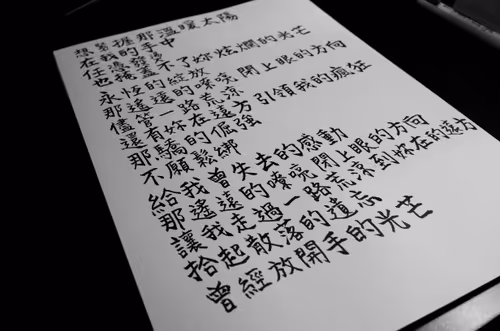 想緊握那溫暖太陽
在我的手中
任憑發燙
也掩蓋不了妳炫爛的光芒
永恆的綻放
那遙遠的嘹喨 閉上眼的方向
儘管一路荒涼
還有妳在遠方 引領我的瘋狂
那驕的倔強
不願鬆綁
給我曾失去的感動
那遙遠的嘹喨 閉上眼的方向
讓我走過一路荒涼到妳在的遠方
拾起散落的遺忘
曾經放開手的光芒